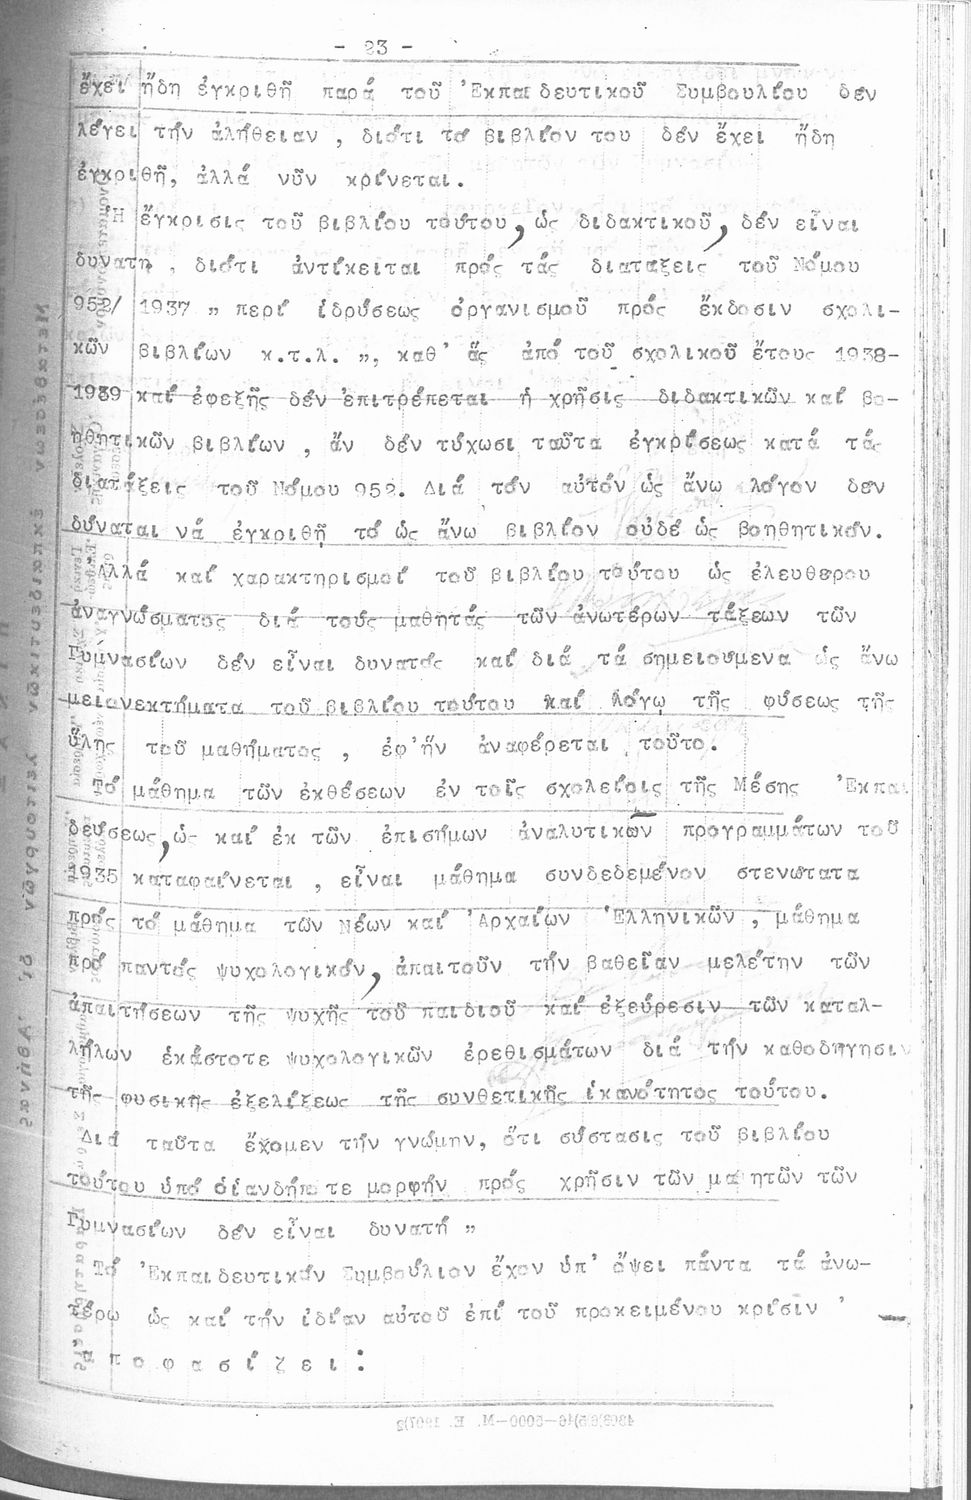 - 23 -
ἔχει ἤδη ἐγκριθῆ παρά τοῦ Ἐκπαιδευτικοῦ Συμβουλίου δέν
λέγει τήν ἀλήθειαν , διότι τό βιβλίον του δέν ἔχει ἤδη
ἐγκριθῆ, ἀλλά νῦν κρίνεται.
Ἡ ἔγκρισις τοῦ βιβλίου τούτου, ὡς διδακτικοῦ, δέν εἶναι
δυνατη , διότι ἀντίκειται πρός τάς διατάξεις τοῦ Νόμου
952/ 1937 „ περί ἱδρύσεως ὀργανισμοῦ πρός ἔκδοσιν σχολι-
κῶν βιβλίων κ.τ.λ. „, καθ' ἅς ἀπό τοῦ σχολικοῦ ἔτους 1938-
1939 καί ἐφεξῆς δέν ἐπιτρέπεται ἡ χρῆσις διδακτικῶν καί βο-
ηθητικῶν βιβλίων , ἄν δέν τύχωσι ταῦτα ἐγκρίσεως κατά τάς
διατάξεις τοῦ Νόμου 952. Διά τόν αὐτόν ὡς ἄνω λόγον δέν
δύναται νά ἐγκριθῆ τό ὡς ἄνω βιβλίον οὐδέ ὡς βοηθητικόν.
Ἀλλά καί χαρακτηρισμοί τοῦ βιβλίου τούτου ὡς ἐλευθέρου
ἀναγνώσματος διά τούς μαθητάς τῶν ἀνωτέρων τάξεων τῶν
Γυμνασίων δέν εἶναι δυνατός καί διά τά σημειούμενα ὡς ἄνω
μειονεκτήματα τοῦ βιβλίου τούτου καί λόγῳ τῆς φύσεως τῆς
ὕλης τοῦ μαθήματος , ἐφ'ἥν ἀναφέρεται τοῦτο.
Τό μάθημα τῶν ἐκθέσεων ἐν τοῖς σχολείοις τῆς Μέσης Ἐκπαι
δεύσεως, ὡς καί ἐκ τῶν ἐπισήμων ἀναλυτικῶν προγραμμάτων τοῦ
1935 καταφαίνεται , εἶναι μάθημα συνδεδεμένον στενώτατα
πρός τό μάθημα τῶν Νέων καί Ἀρχαίων Ἑλληνικῶν , μάθημα
πρό παντός ψυχολογικόν, ἀπαιτοῦν τήν βαθεῖαν μελέτην τῶν
ἀπαιτήσεων τῆς ψυχῆς τοῦ παιδιοῦ καί ἐξεύρεσιν τῶν καταλ-
λήλων ἑκάστοτε ψυχολογικῶν ἐρεθισμάτων διά τήν καθοδήγησιν
τῆς φυσικῆς ἐξελίξεως τῆς συνθετικῆς ἱκανότητος τούτου.
Διά ταῦτα ἔχομεν τήν γνώμην, ὅτι σύστασις τοῦ βιβλίου
τούτου ὑπό οἱανδήποτε μορφήν πρός χρῆσιν τῶν μαθητῶν τῶν
Γυμνασίων δέν εἶναι δυνατή „
Τό Ἐκπαιδευτικόν Συμβούλιον ἔχον ὑπ' ὄψει πάντα τά ἀνω-
τέρω ὡς καί τήν ἰδίαν αὐτοῦ ἐπί τοῦ προκειμένου κρίσιν '
ἀ π ο φ α σ ί ζ ε ι :